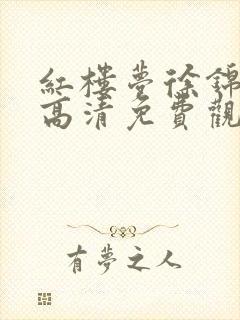 紅樓夢徐錦
高清免費觀
有夢之人